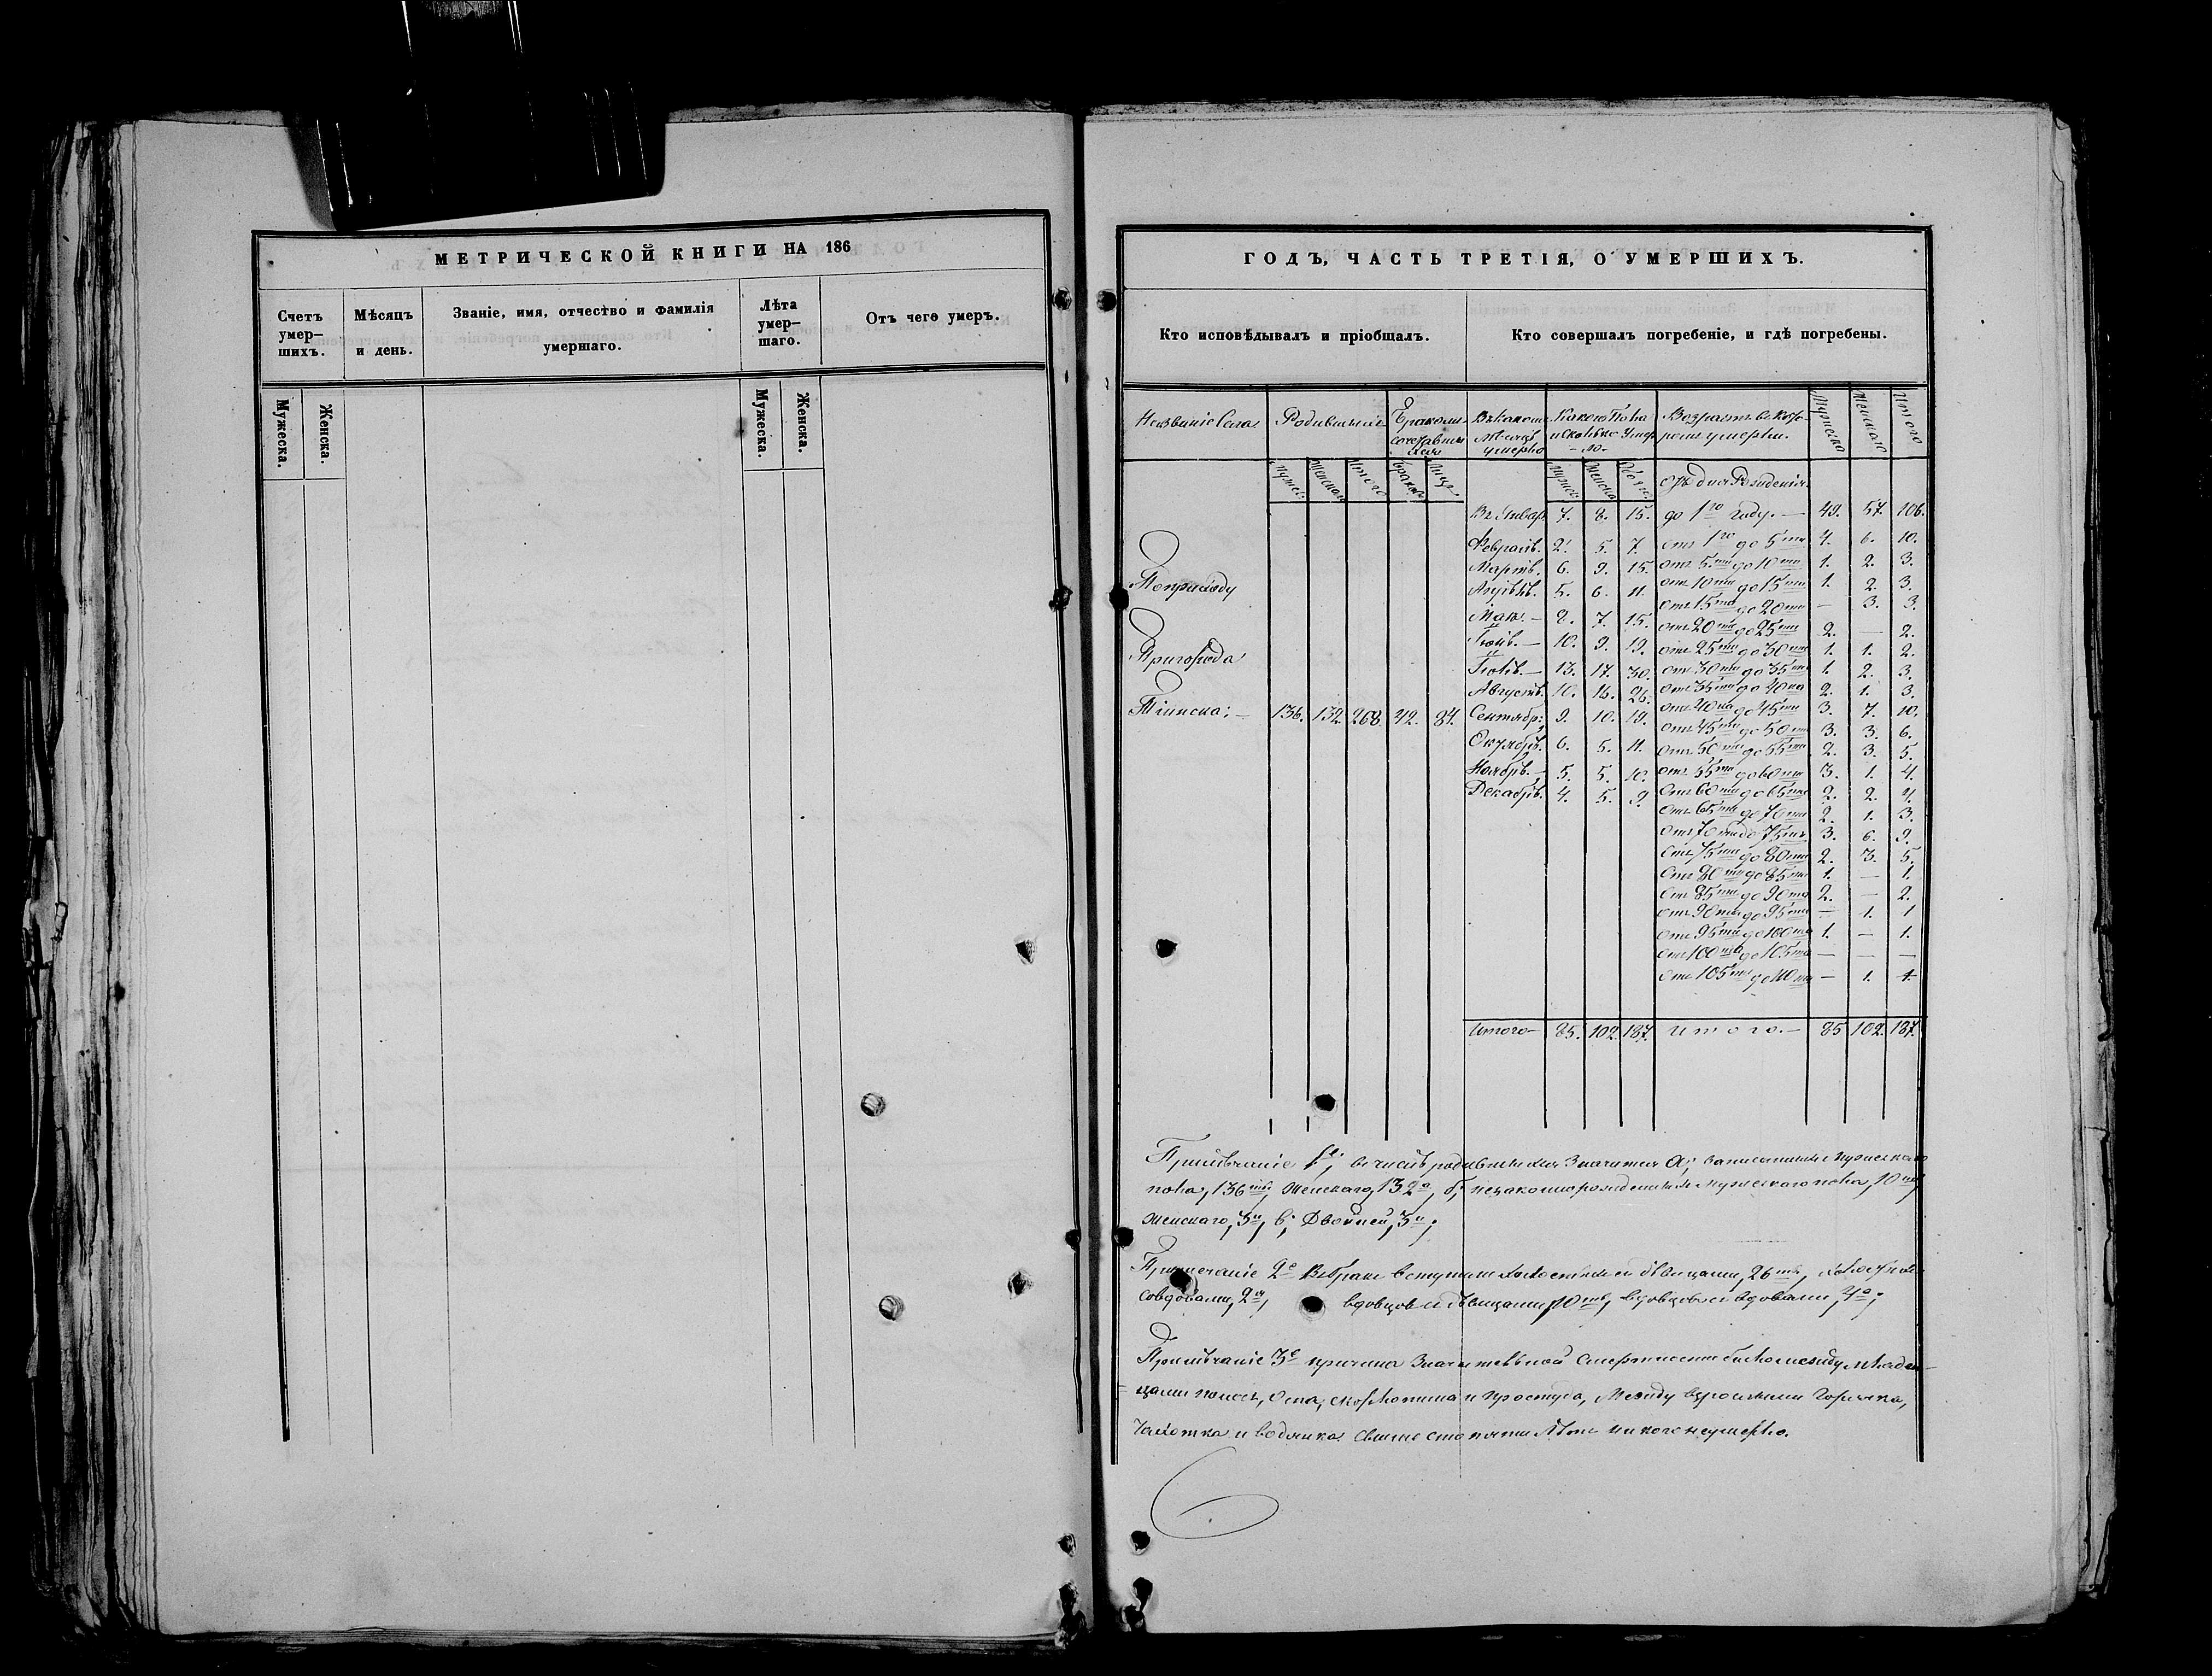 МЕТРИЧЕСКОЙ КНИГИ НА 186
Счетъ умер–шихъ.
Мѣсяцъ и день.
Званіе, имя, отчество и фамилія умершаго.
Лѣта умер–шаго.
Отъ чего умеръ.
Мужеска.
Женска.
Мужеска.
Женска.
ГОДЪ, ЧАСТЬ ТРЕТІЯ, О УМЕРШИХЪ.
Кто исповѣдывалъ и пріобщалъ.
Кто совершалъ погребеніе, и гдѣ погребены.
Названіе Села
Родившихся
Бракомъ сочетавшихся
Въ какомъ мѣсяцѣ умерло
Какого Пола и сколько Умерло
Возрастъ въ которомъ умерли.
Мужеска
Женскаго
Итого
Мужес. Женскаго Итого Браковъ Лицъ
Мужес. Женска Обоего
Отъ дня Рожденія
Въ Январѣ 7. 8. 15. до 1го Году. — 49. 57. 106.
Февралѣ. 2. 5. 7. отъ 1го до 5ти 4. 6. 10.
Мартѣ. 6. 9. 15. отъ 5ти до 10ти 1. 2. 3.
По приходу
Апрѣлѣ. 5. 6. 11. отъ 10ти до 15ти 1. 2. 3.
отъ 15ти до 20ти — 3. 3.
Маѣ. — 8. 7. 15. отъ 20ти до 25ти 2. — 2.
Пригорода
Іюнѣ. — 10. 9. 19. отъ 25ти до 30ти 1. 1. 2.
Іюлѣ. — 13. 17. 30. отъ 30ти до 35ти 1. 2. 3.
Августѣ. 10. 16. 26. отъ 35ти до 40ка 2. 1. 3.
Тіинска: — 136. 132. 268. 42. 84.
Сентябрѣ 9. 10. 19. отъ 40ка до 45ти 3. 7. 10.
отъ 45ти до 50ти 3. 3. 6.
Октябрѣ. 6. 5. 11. отъ 50ти до 55ти 2. 3. 5.
Ноябрѣ. — 5. 5. 10. отъ 55ти до 60ти 3. 1. 4.
Декабрѣ. 4. 5. 9. отъ 60ти до 65ти 2. 2. 4.
отъ 65ти до 70ти 2. 1. 3.
отъ 70ти до 75ти 3. 6. 9.
отъ 75ти до 80ти 2. 3. 5.
отъ 80ти до 85ти 1. — 1.
отъ 85ти до 90та 2. — 2.
отъ 90та до 95ти — 1. 1
отъ 95ти до 100та 1. — 1.
отъ 100та до 105ти — — —
отъ 105ти до 110ти — 1. 1.
Итого — 85. 102. 187. Итого. — 85 102. 187.
Примѣчаніе 1е; въ числѣ родившихся Значится а; записанныхъ Мужескаго
пола, 136ть, Женскаго, 132а, б; незаконнорожденныхъ мужескаго пола, 10ть,
женскаго, 3и, в; Двойней, 3и;
Примечаніе 2е Въ бракъ вступили холостыхъ съ дѣвицами, 26ть, холостыхъ
со вдовами, 2а, вдовцовъ съ дѣвицами, 10ть, вдовцовъ съ вдовами, 4е;
Примѣчаніе 3е причина Значительной Смертности была между младен-
цами поносъ, Оспа, скорлатина и простуда, Между взрослыми Горячка,
Чахотка и водянка. Свыше сто пяти Лѣтъ никого не умерло.